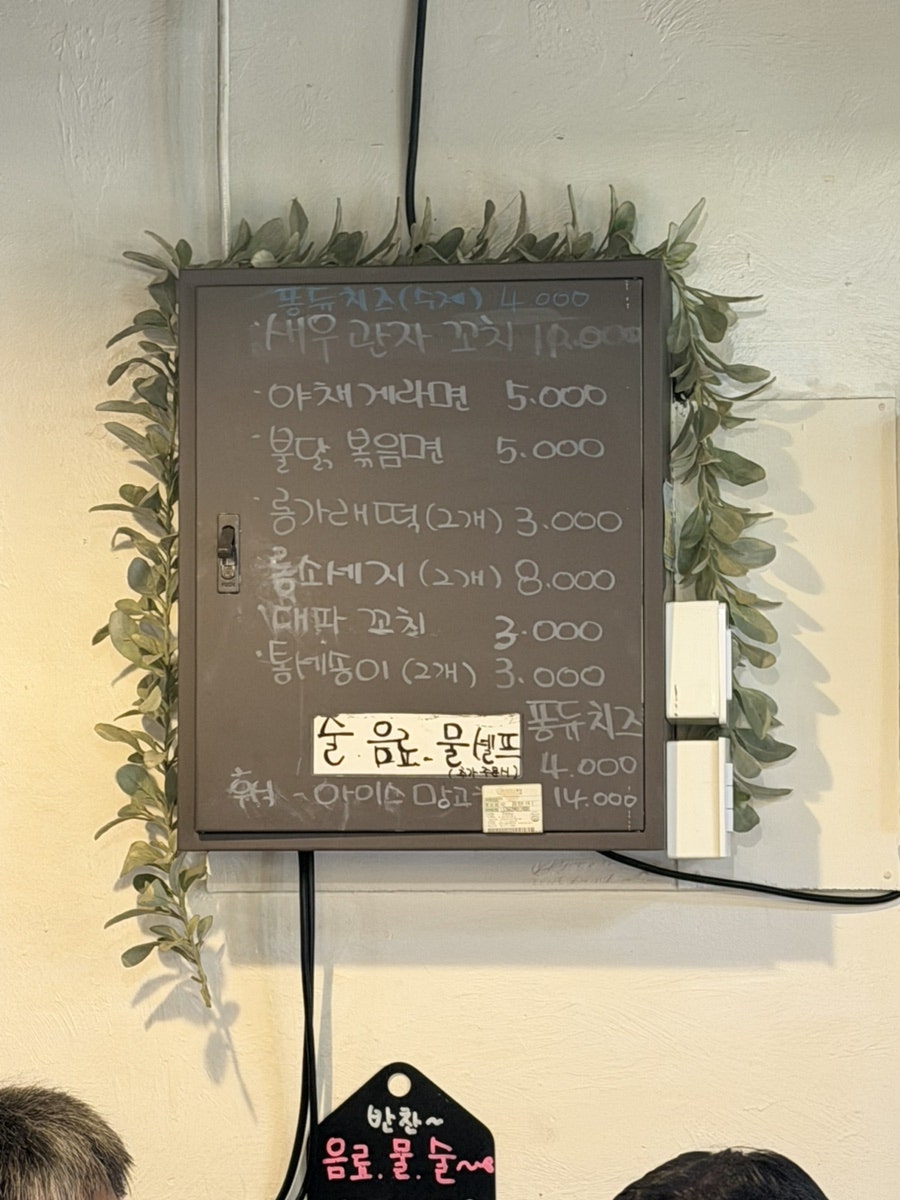 퐁듀치즈(수제) 4.000
·새우 관자 꼬치 10.000
·야채게라면 5.000
·불닭 볶음면 5.000
·롱가래떡(2개) 3.000
·롱소세지(2개) 8.000
·대파 꼬치 3.000
·통세송이(2개) 3.000
퐁듀치즈
4.000
술.음료.물 셀프
(추가주문시)
- 아이스망고 14.000
반찬~
음료.물.술~